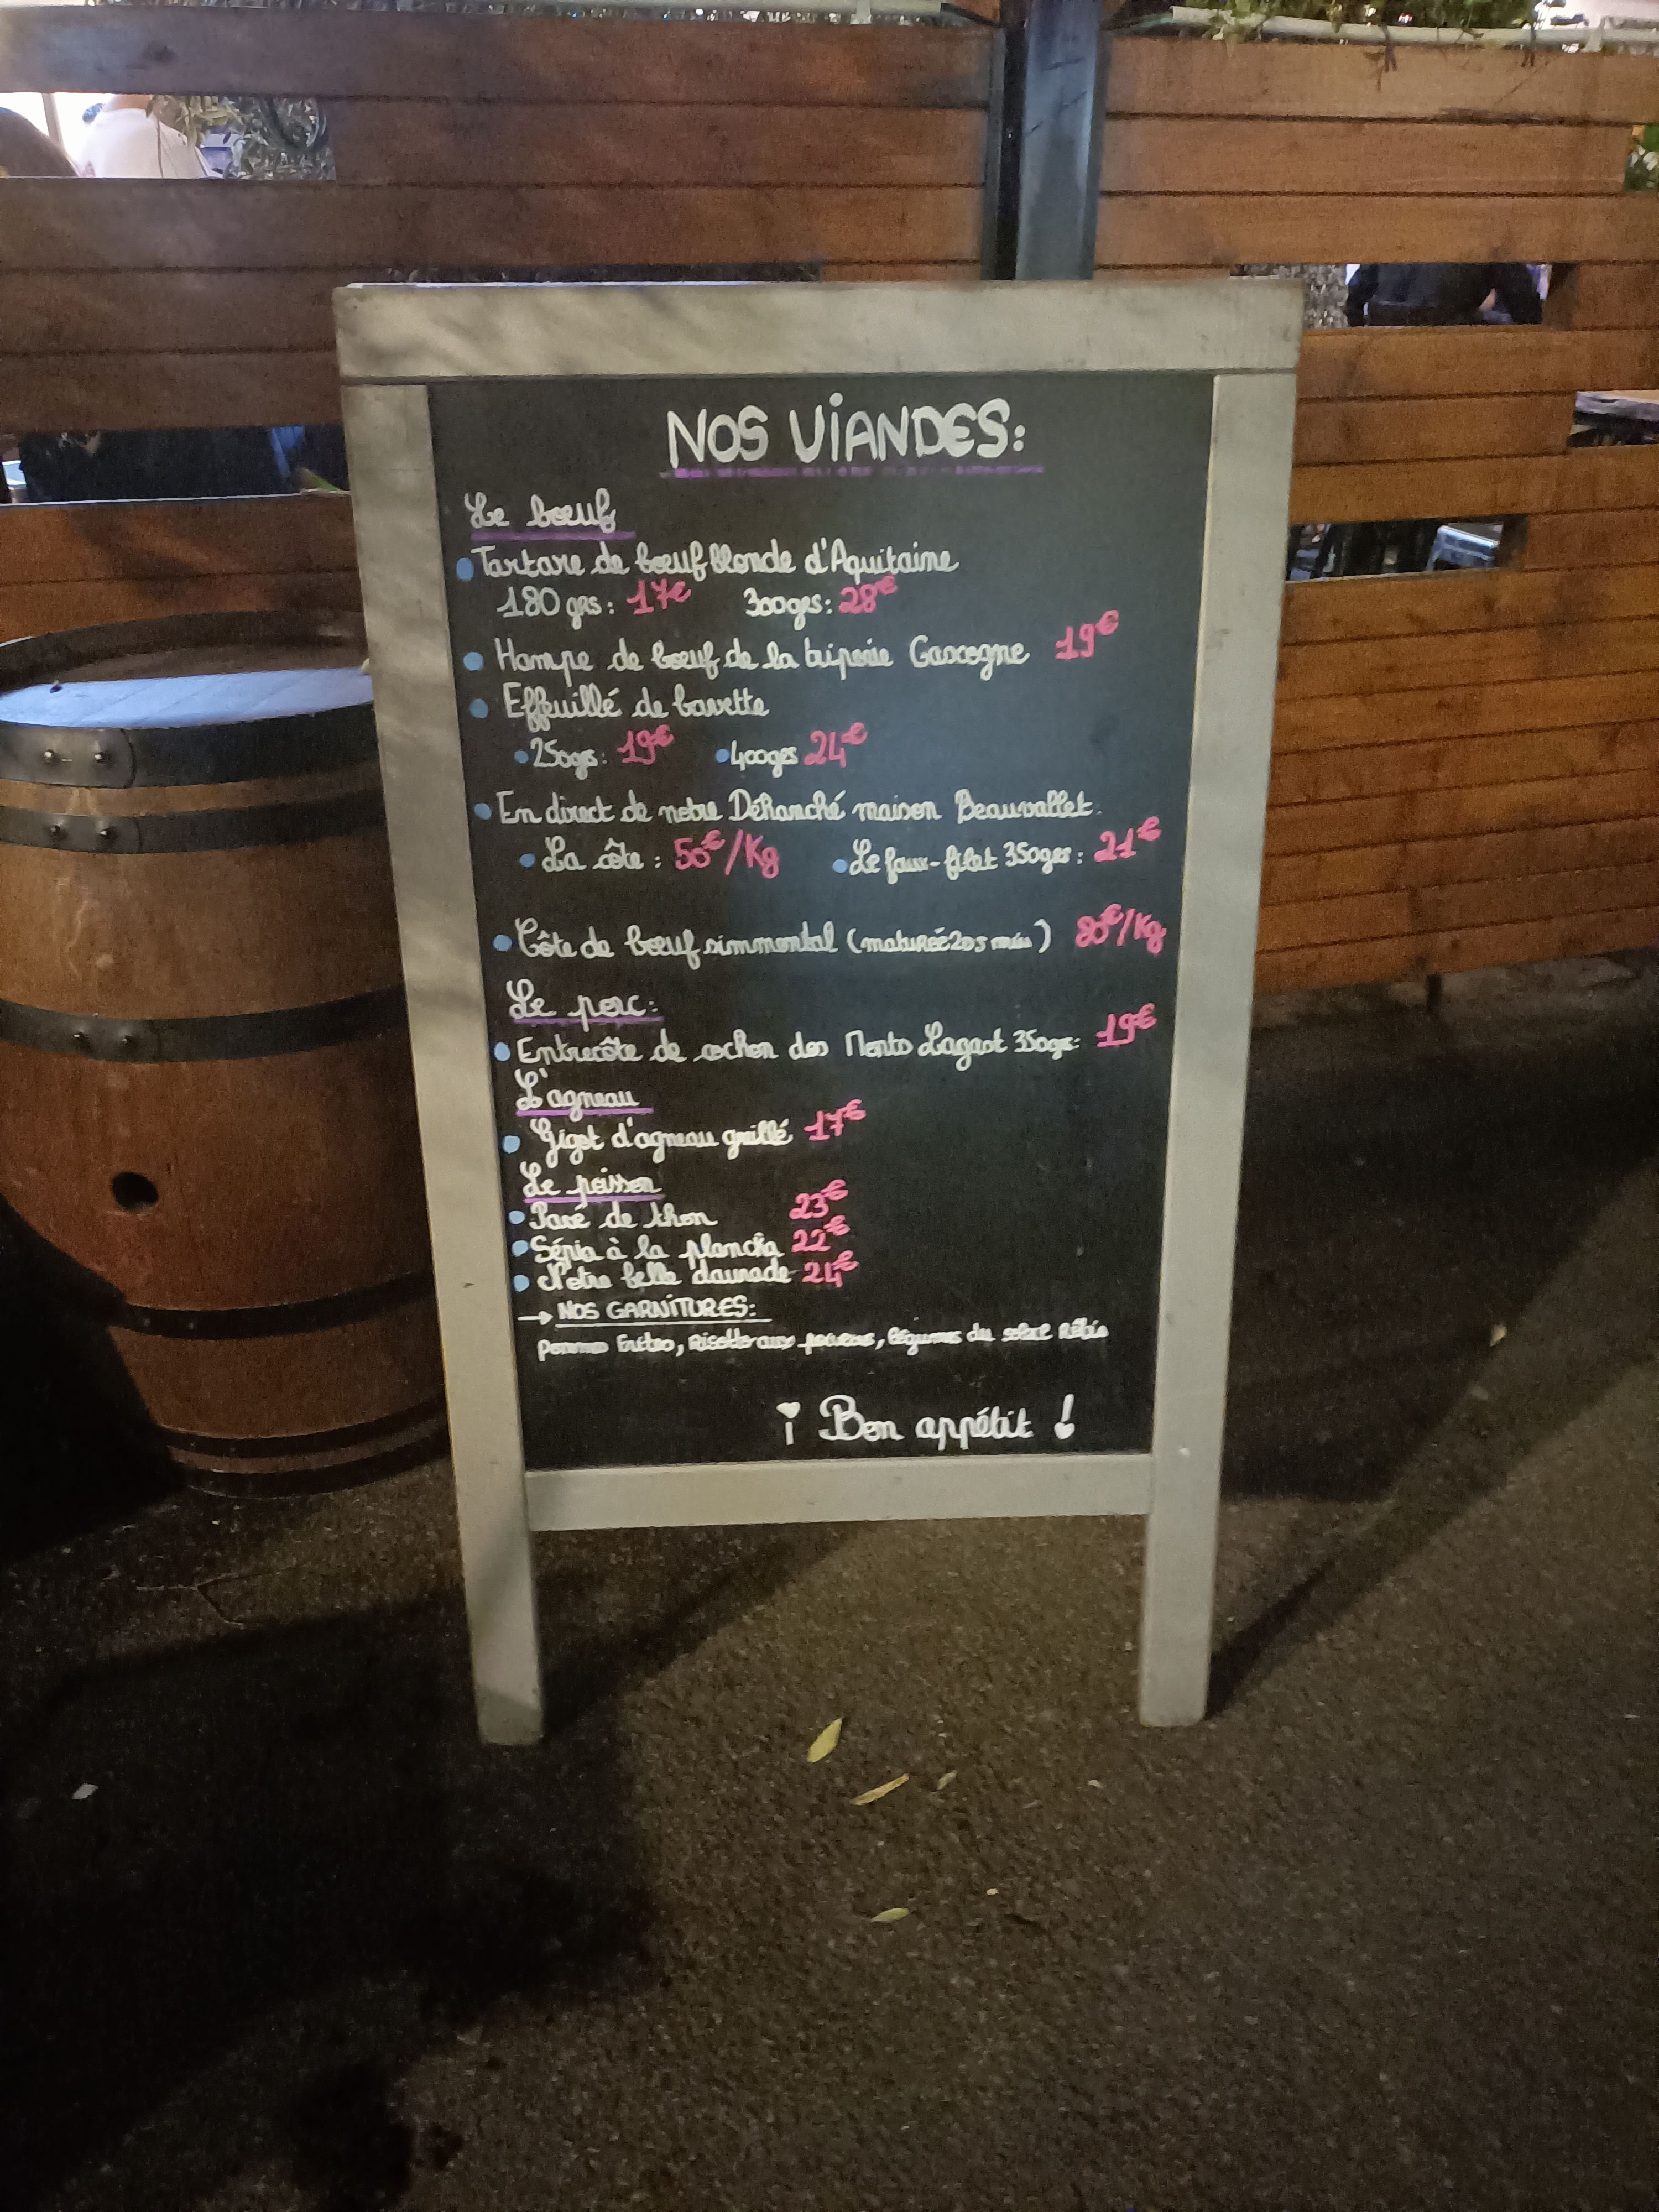 NOS VIANDES:
Le bœuf
Tartare de bœuf blonde d'Aquitaine
180 grs: 17€ 300grs: 28€
Hampe de bœuf de la triperie Gascogne 19€
Effeuillé de bavette
250grs: 19€ 400grs 24€
En direct de notre Déhanché maison Beauvallet.
La côte: 50€/Kg Le faux-filet 350grs: 21€
Côte de bœuf simmental (maturée 20s min) 80€/Kg
Le porc:
Entrecôte de cochon des Monts Lagast 350grs: 19€
L'agneau
Gigot d'agneau grillé 17€
Le poisson
Pavé de thon 23€
Sépia à la plancha 22€
Notre belle daurade 24€
→ NOS GARNITURES:
pommes frites, Risotto aux, légumes du
¡ Bon appétit !